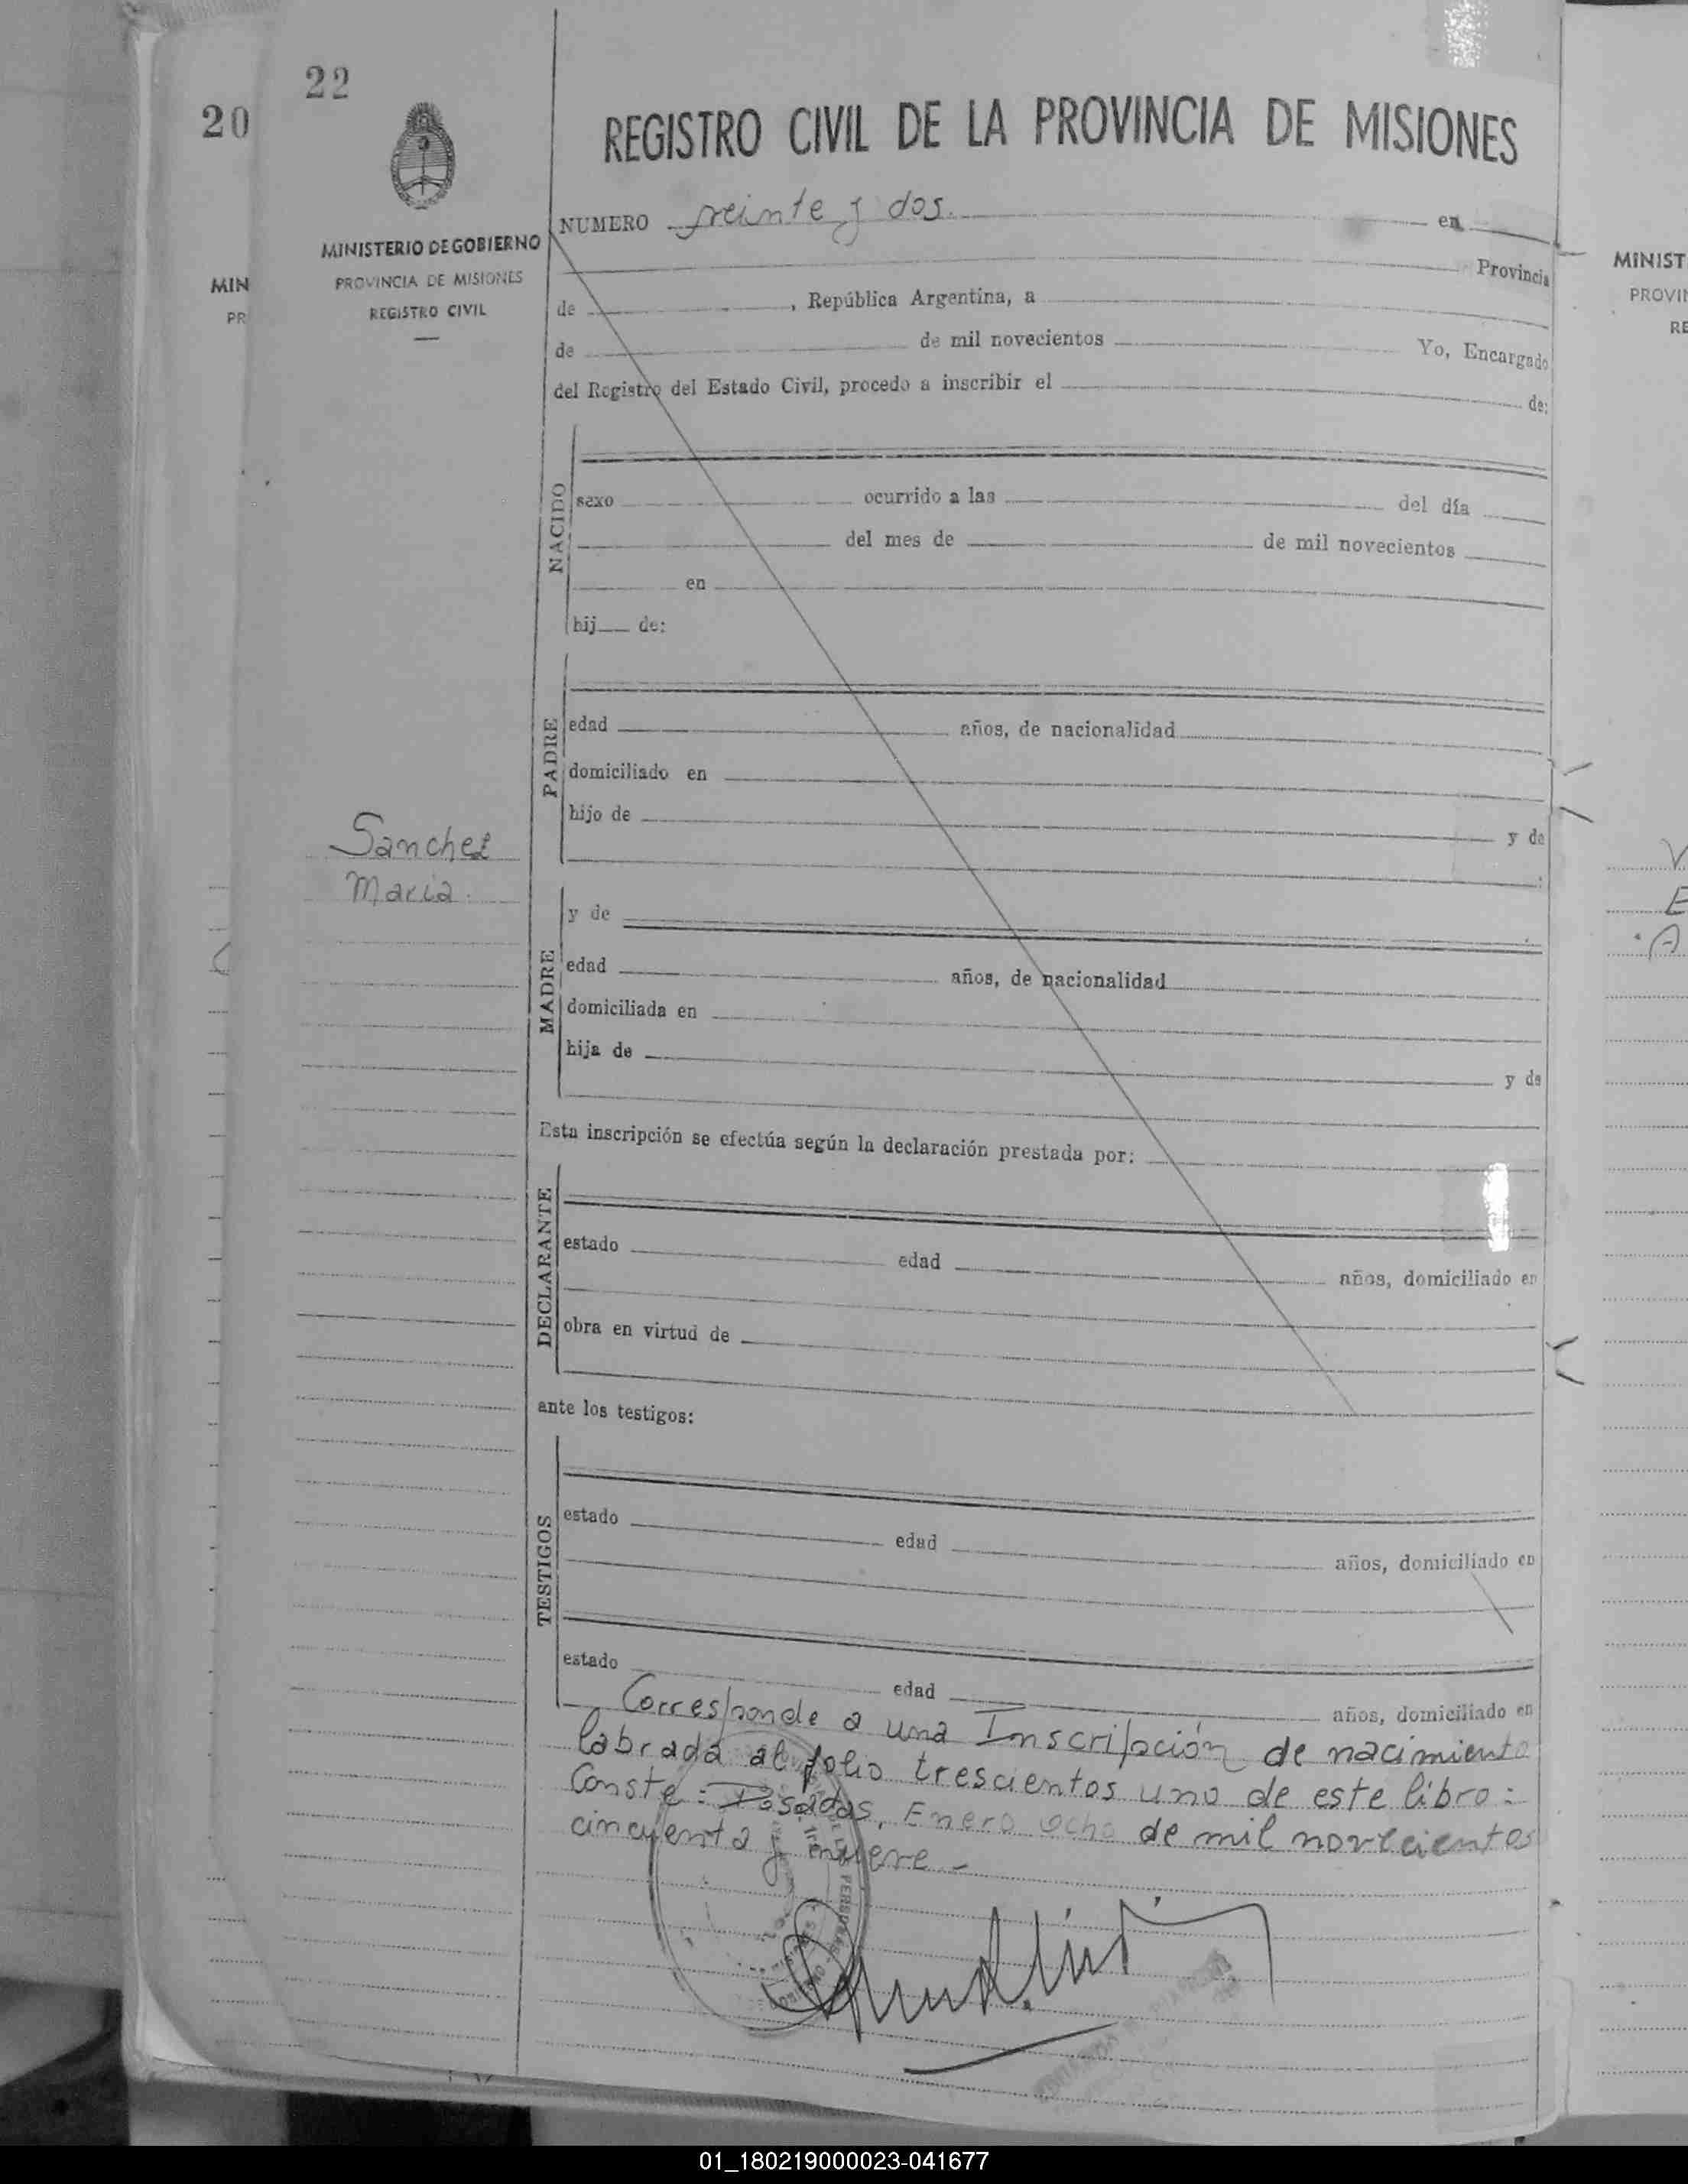 22
20
REGISTRO CIVIL DE LA PROVINCIA DE MISIONES
MINISTERIO DE GOBIERNO
PROVINCIA DE MISIONES
REGISTRO CIVIL
MIN
PR
MINIST
PROVIN
RE
NUMERO veinte y dos. en
Provincia
de , República Argentina, a
de de mil novecientos Yo, Encargado
del Registro del Estado Civil, procedo a inscribir el de:
NACIDO
sexo ocurrido a las del día
del mes de de mil novecientos
en
hij de:
PADRE
edad años, de nacionalidad
domiciliado en
hijo de y de
Sanchez
Maria.
MADRE
y de
edad años, de nacionalidad
domiciliada en
hija de y de
Esta inscripción se efectúa según la declaración prestada por:
DECLARANTE
estado edad años, domiciliado en
obra en virtud de
ante los testigos:
TESTIGOS
estado edad años, domiciliado en
estado edad años, domiciliado en
Corresponde a una Inscripción de nacimiento
labrada al folio trescientos uno de este libro:
Conste: Posadas, Enero ocho de mil novecientos
cincuenta y
V
E
A
01_180219000023-041677